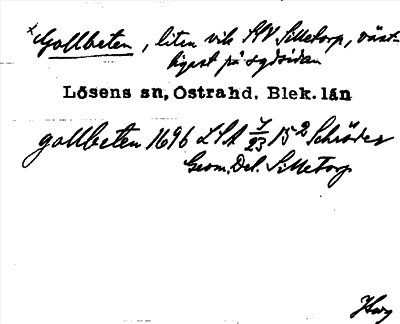 × Gollbeten, liten vik SV Silletorp, väst-
ligast på sydsidan
Lösens sn, Östra hd, Blek. län
gollbeten 1696 LSA 7/23 15² Schröder
Geom. Del. Silletorp